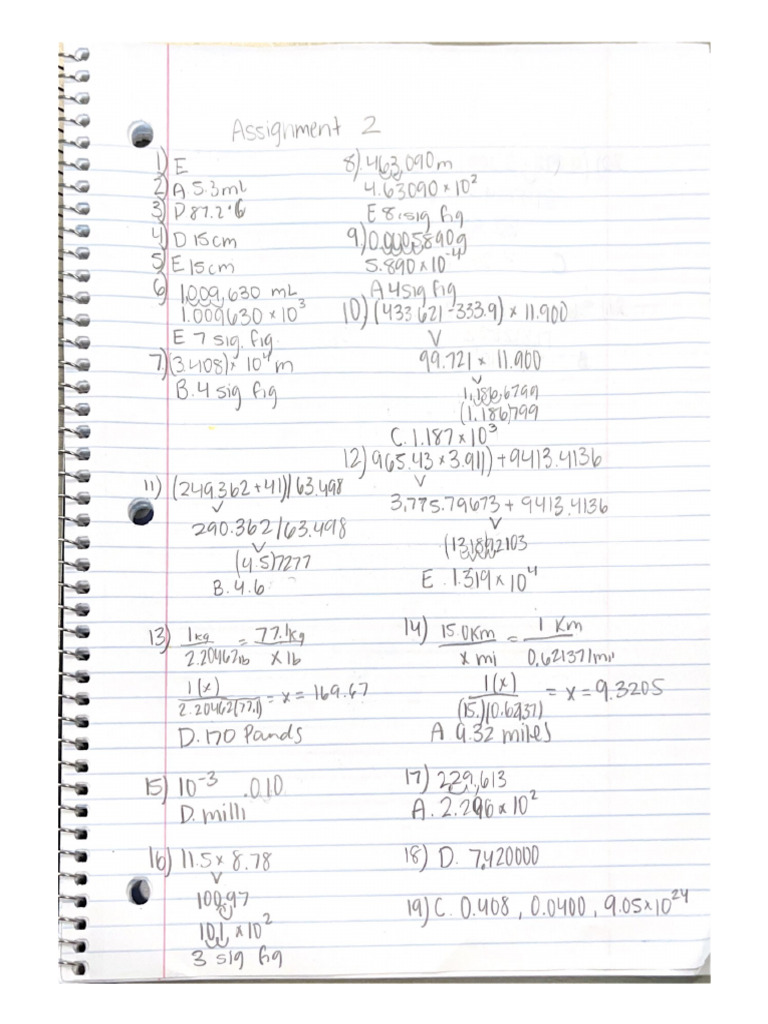 Assignment 2
1) E
2) A 5.3mL
3) D 87.2°6
4) D 15cm
5) E 15cm
6) 1,009,630 mL
1.009630 × 10³
E 7 sig. fig.
7) (3.408) × 10⁴ m
B. 4 sig fig
8) .463,090m
4.63090 × 10²
E 8. sig fig
9.) 0.0005890g
5.890 × 10⁻⁴
A 4 sig fig
10) (433.621 - 333.9) × 11.900
99.721 × 11.900
1,186.6799
(1.186,799
C. 1.187 × 10³
11) (249.362 + 41) / 63.498
290.362 / 63.498
(4.5)7277
B. 4.6
12) 965.43 × 3.911) + 9413.4136
3,775.79673 + 9413.4136
E. 1.319 × 10⁴
13) 1kg / 2.20462lb = 77.1kg / x lb
1(x) / 2.20462(77.1) = x = 169.67
D. 170 Pands
14) 15.0Km / x mi = 1 Km / 0.621371mi
1(x) / (15.)(0.6237) = x = 9.3205
A 9.32 miles
15) 10⁻³ .010
D. milli
16) 11.5 × 8.78
100.97
101 × 10²
3 sig fig
17) 229,613
A. 2.296 × 10²
18) D. 7.420000
19) C. 0.408, 0.0400, 9.05×10²⁴